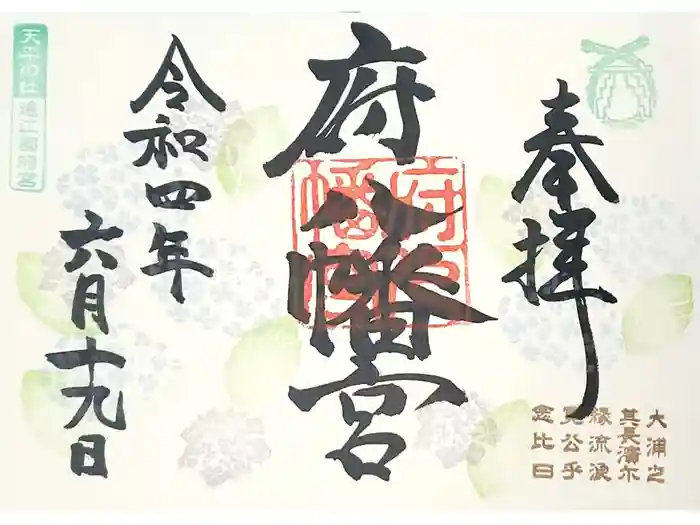 奉拝
大浦之
其長濱尓
縁流浪
寛公乎
念比日
府八幡宮
府八
幡宮
令和四年
六月十九日
天平の社 遠江國府八幡宮